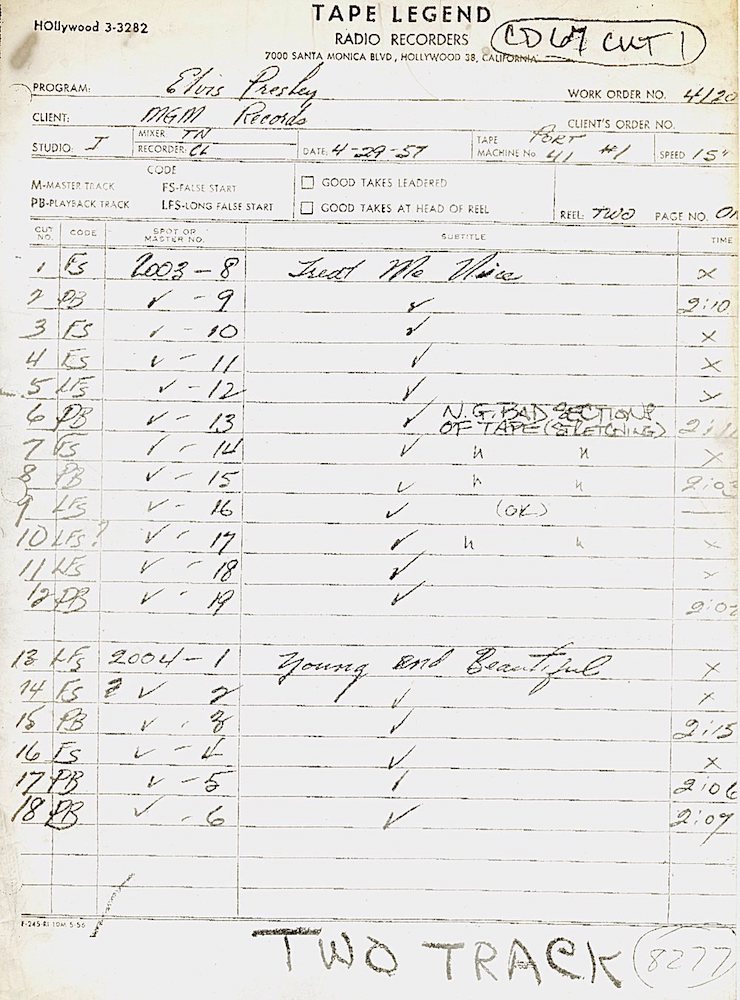 HOllywood 3-3282
TAPE LEGEND
RADIO RECORDERS
7000 SANTA MONICA BLVD., HOLLYWOOD 38, CALIFORNIA
CD 67 CUT 1
PROGRAM: Elvis Presley
WORK ORDER NO. 4120
CLIENT: MGM Records
CLIENT'S ORDER NO.
STUDIO: I
MIXER TN
RECORDER: CL
DATE: 4-29-57
TAPE PORT
MACHINE No 41 #1
SPEED 15"
CODE
M-MASTER TRACK FS-FALSE START
PB-PLAYBACK TRACK LFS-LONG FALSE START
GOOD TAKES LEADERED
GOOD TAKES AT HEAD OF REEL
REEL: TWO PAGE NO.
CUT NO. CODE SPOT OR MASTER NO. SUBTITLE TIME
1 FS 2003 - 8 Treat Me Nice X
2 PB ✓ - 9 ✓ 2:10
3 FS ✓ - 10 ✓ X
4 FS ✓ - 11 ✓ X
5 LFS ✓ - 12 ✓ X
6 PB ✓ - 13 ✓ N.G. BAD SECTIONS
OF TAPE (STRETCHING)
7 FS ✓ - 14 ✓ " " X
8 PB ✓ - 15 ✓ " " 2:03
9 LFS ✓ - 16 ✓ (OK) —
10 LFS? ✓ - 17 ✓ " " X
11 LFS ✓ - 18 ✓ X
12 PB ✓ - 19 ✓ 2:02
13 LFS 2004 - 1 Young and Beautiful X
14 FS ✓ 2 ✓ X
15 PB ✓ - 3 ✓ 2:15
16 FS ✓ - 4 ✓ X
17 PB ✓ - 5 ✓ 2:06
18 PB ✓ - 6 ✓ 2:07
F-245 RI 10M 5-56
TWO TRACK 8277